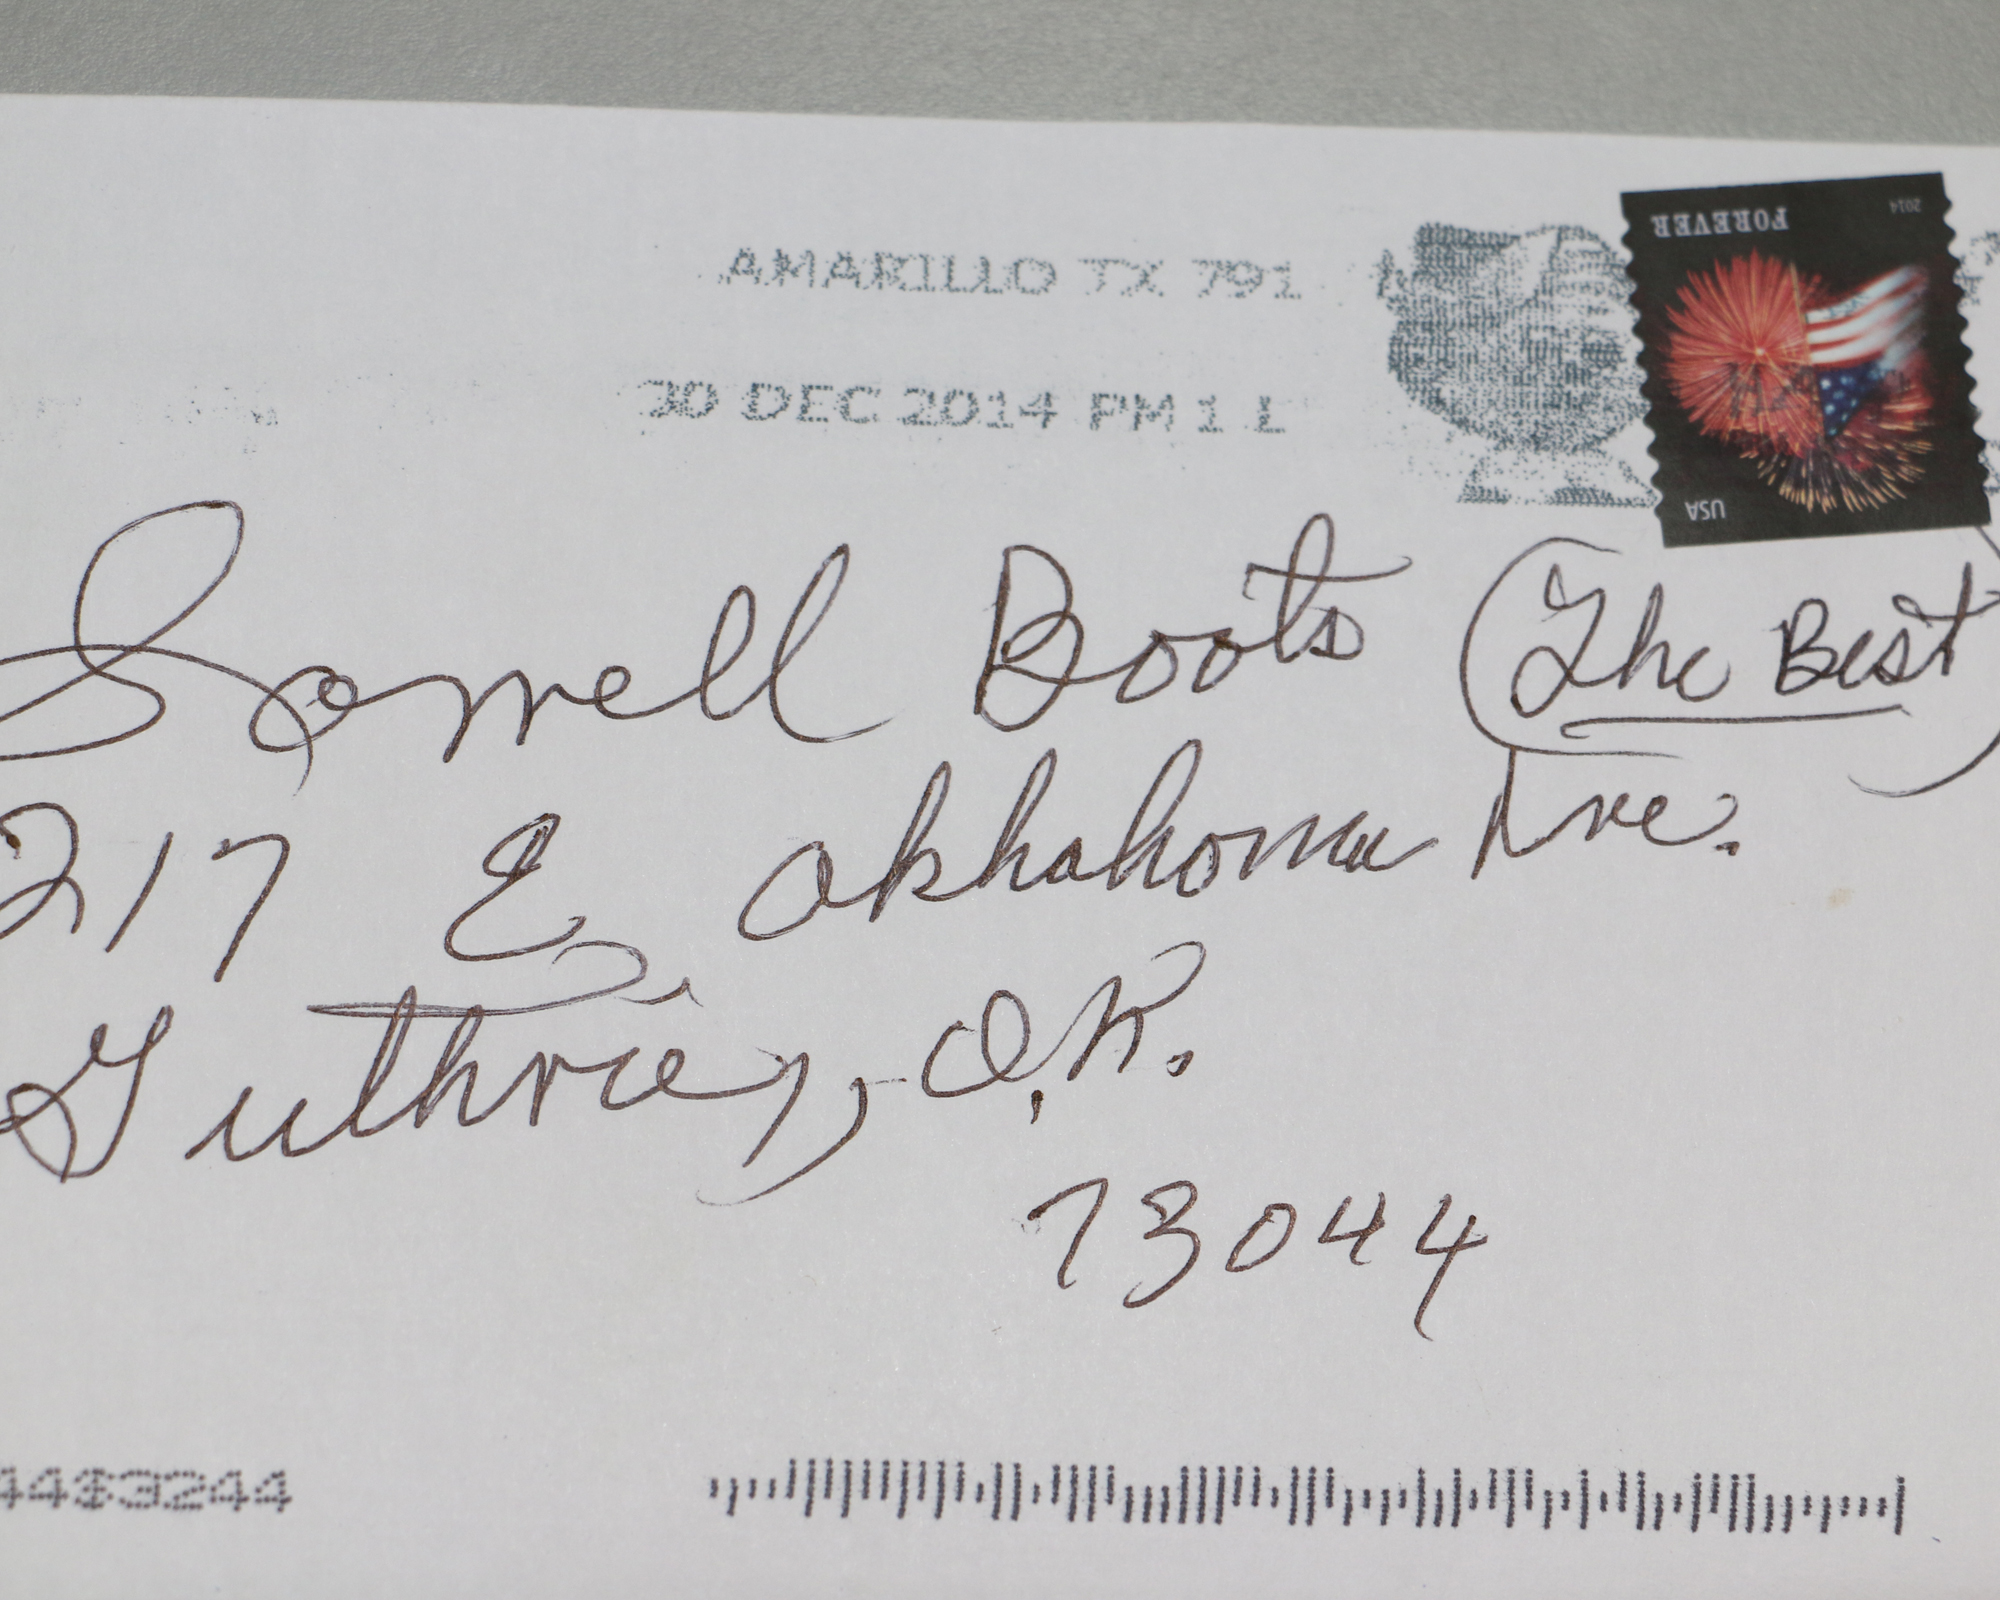 AMARILLO TX 791
30 DEC 2014 PM 1 L
FOREVER
2014
USA
Sorrell Boots (The Best)
217 E. Oklahoma Ave.
Guthrie, O.K.
73044